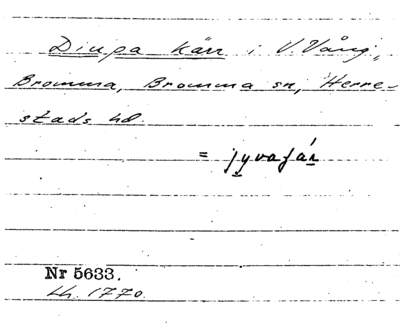 Diupa kärr i V. Vång,
Bromma, Bromma sn, Herre-
stads hd.
= jyvafár
Nr 5633.
Lh. 1770.